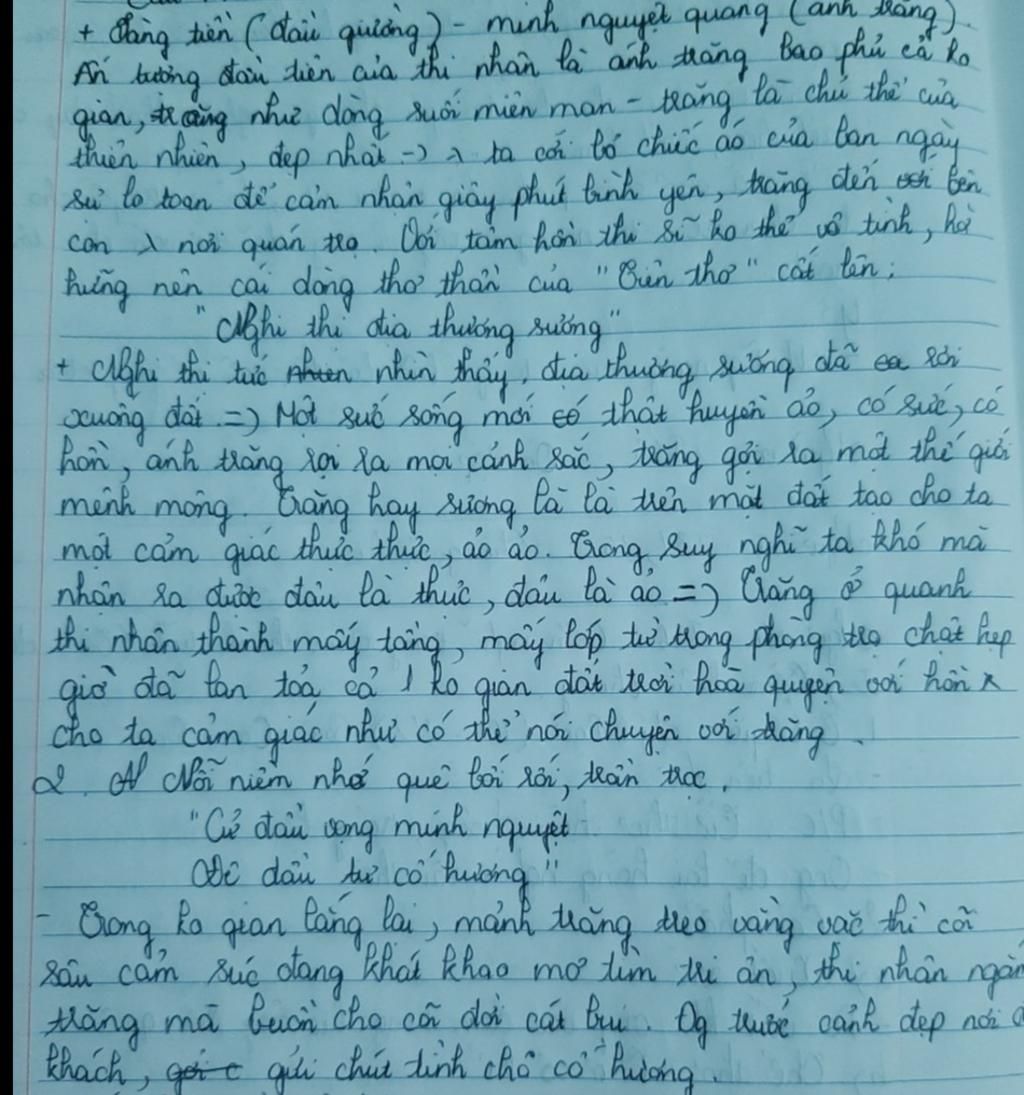 + Sàng tiền (đầu giường) - minh nguyệt quang (ánh trăng).
Ấn tượng đầu tiên của thi nhân là ánh trăng bao phủ cả ko
gian, trăng như dòng suối miên man - trăng là chủ thể của
thiên nhiên, đẹp nhất -> λ ta cởi bỏ chiếc áo của ban ngày
sự lo toan để cảm nhận giây phút bình yên, trăng đến bên
con λ nơi quán trọ. Với tâm hồn thi sĩ ko thể vô tình, hờ
hững nên cái dòng thơ thần của "Tiên thơ" cất lên:
"Nghi thị địa thượng sương"
+ Nghi thị tức nhìn thấy, địa thượng sương đã rơi
xuống đất => Một sức sống mới thật huyền ảo, có sức, có
hồn, ánh trăng rọi ra mọi cảnh sắc, trăng gợi ra một thế giới
mênh mông. Trăng hay sương là là trên mặt đất tạo cho ta
một cảm giác thực thực, ảo ảo. Trong suy nghĩ ta khó mà
nhận ra được đâu là thực, đâu là ảo => Trăng ở quanh
thi nhân thành mấy tầng, mấy lớp từ trong phòng trọ chật hẹp
giờ đã lan toả cả 1 ko gian đất trời hoà quyện với hồn λ
cho ta cảm giác như có thể nói chuyện với trăng.
2. Nỗi niềm nhớ quê bối rối, trằn trọc.
"Cử đầu vọng minh nguyệt
Đê đầu tư cố hương"
- Trong ko gian lắng lại, mảnh trăng treo vằng vặc thì cõi
sâu cảm xúc đang khát khao mơ tìm tri ân, thi nhân ngắm
trăng mà buồn cho cõi đời cát bụi. Ôg trước cảnh đẹp nơi
khách, gửi chút tình chố cố hương.